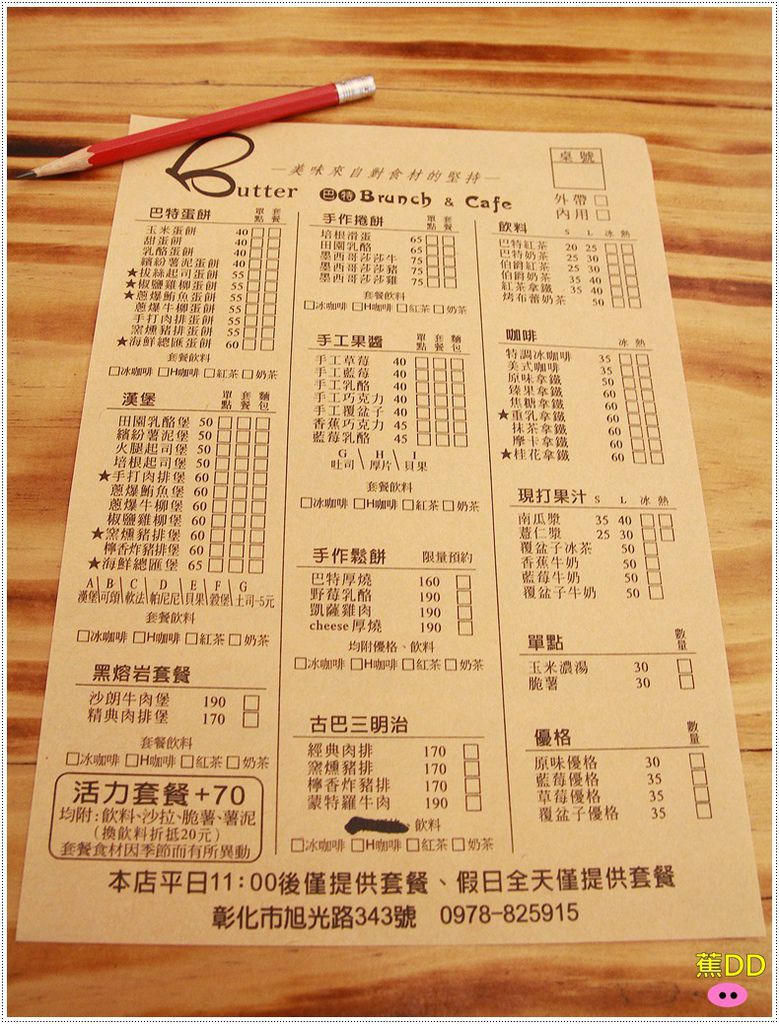 Butter
—美味來自對食材的堅持—
巴特Brunch & Cafe
桌號
外帶□
內用□
巴特蛋餅 單點 套餐
玉米蛋餅 40 □□
甜蛋餅 □□
乳酪蛋餅 40 □□
繽紛薯泥蛋餅 40 □□
★拔絲起司蛋餅 55 □□
★椒鹽雞柳蛋餅 55 □□
★蔥爆鮪魚蛋餅 55 □□
蔥爆牛柳蛋餅 55 □□
手打肉排蛋餅 55 □□
窯燻豬排蛋餅 55 □□
★海鮮總匯蛋餅 60 □□
套餐飲料
□冰咖啡 □H咖啡 □紅茶 □奶茶
漢堡 單點 套餐 麵包
田園乳酪堡 50 □□□
繽紛薯泥堡 50 □□□
火腿起司堡 50 □□□
培根起司堡 50 □□□
★手打肉排堡 60 □□□
蔥爆鮪魚堡 60 □□□
蔥爆牛柳堡 60 □□□
椒鹽雞柳堡 60 □□□
★窯燻豬排堡 60 □□□
檸香炸豬排堡 60 □□□
★海鮮總匯堡 65 □□□
A B C D E F G
漢堡\可頌\軟法\帕尼尼\貝果\穀堡\土司-5元
套餐飲料
□冰咖啡 □H咖啡 □紅茶 □奶茶
黑熔岩套餐
沙朗牛肉堡 190 □
精典肉排堡 170 □
套餐飲料
□冰咖啡 □H咖啡 □紅茶 □奶茶
活力套餐+70
均附:飲料、沙拉、脆薯、薯泥
(換飲料折抵20元)
套餐食材因季節而有所異動
手作捲餅 單點 套餐
培根滑蛋 65 □□
田園乳酪 65 □□
墨西哥莎莎牛 75 □□
墨西哥莎莎豬 75 □□
墨西哥莎莎雞 75 □□
套餐飲料
□冰咖啡 □H咖啡 □紅茶 □奶茶
手工果醬 單點 套餐 麵包
手工草莓 40 □□□
手工藍莓 40 □□□
手工乳酪 40 □□□
手工巧克力 40 □□□
手工覆盆子 40 □□□
香蕉巧克力 45 □□□
藍莓乳酪 45 □□□
G H I
吐司\厚片\貝果
套餐飲料
□冰咖啡 □H咖啡 □紅茶 □奶茶
手作鬆餅 限量預約
巴特厚燒 160 □
野莓乳酪 190 □
凱薩雞肉 190 □
cheese厚燒 190 □
均附優格、飲料
□冰咖啡 □H咖啡 □紅茶 □奶茶
古巴三明治
經典肉排 170 □
窯燻豬排 170 □
檸香炸豬排 170 □
蒙特羅牛肉 190 □
飲料
□冰咖啡 □H咖啡 □紅茶 □奶茶
飲料 S L 冰 熱
巴特紅茶 20 25 □□
巴特奶茶 25 30 □□
伯爵紅茶 25 30 □□
伯爵奶茶 35 40 □□
紅茶拿鐵 35 40 □□
烤布蕾奶茶 50 □□
咖啡 冰 熱
特調冰咖啡 35 □
美式咖啡 35 □□
原味拿鐵 50 □□
榛果拿鐵 60 □□
焦糖拿鐵 60 □□
★重乳拿鐵 60 □□
抹茶拿鐵 60 □□
摩卡拿鐵 60 □□
★桂花拿鐵 60 □□
現打果汁 S L 冰 熱
南瓜漿 35 40 □□
薏仁漿 25 30 □□
覆盆子冰茶 50 □
香蕉牛奶 50 □
藍莓牛奶 50 □
覆盆子牛奶 50 □
單點 數量
玉米濃湯 30 □
脆薯 30 □
優格 數量
原味優格 30 □
藍莓優格 35 □
草莓優格 35 □
覆盆子優格 35 □
本店平日11:00後僅提供套餐、假日全天僅提供套餐
彰化市旭光路343號 0978-825915
蕉DD